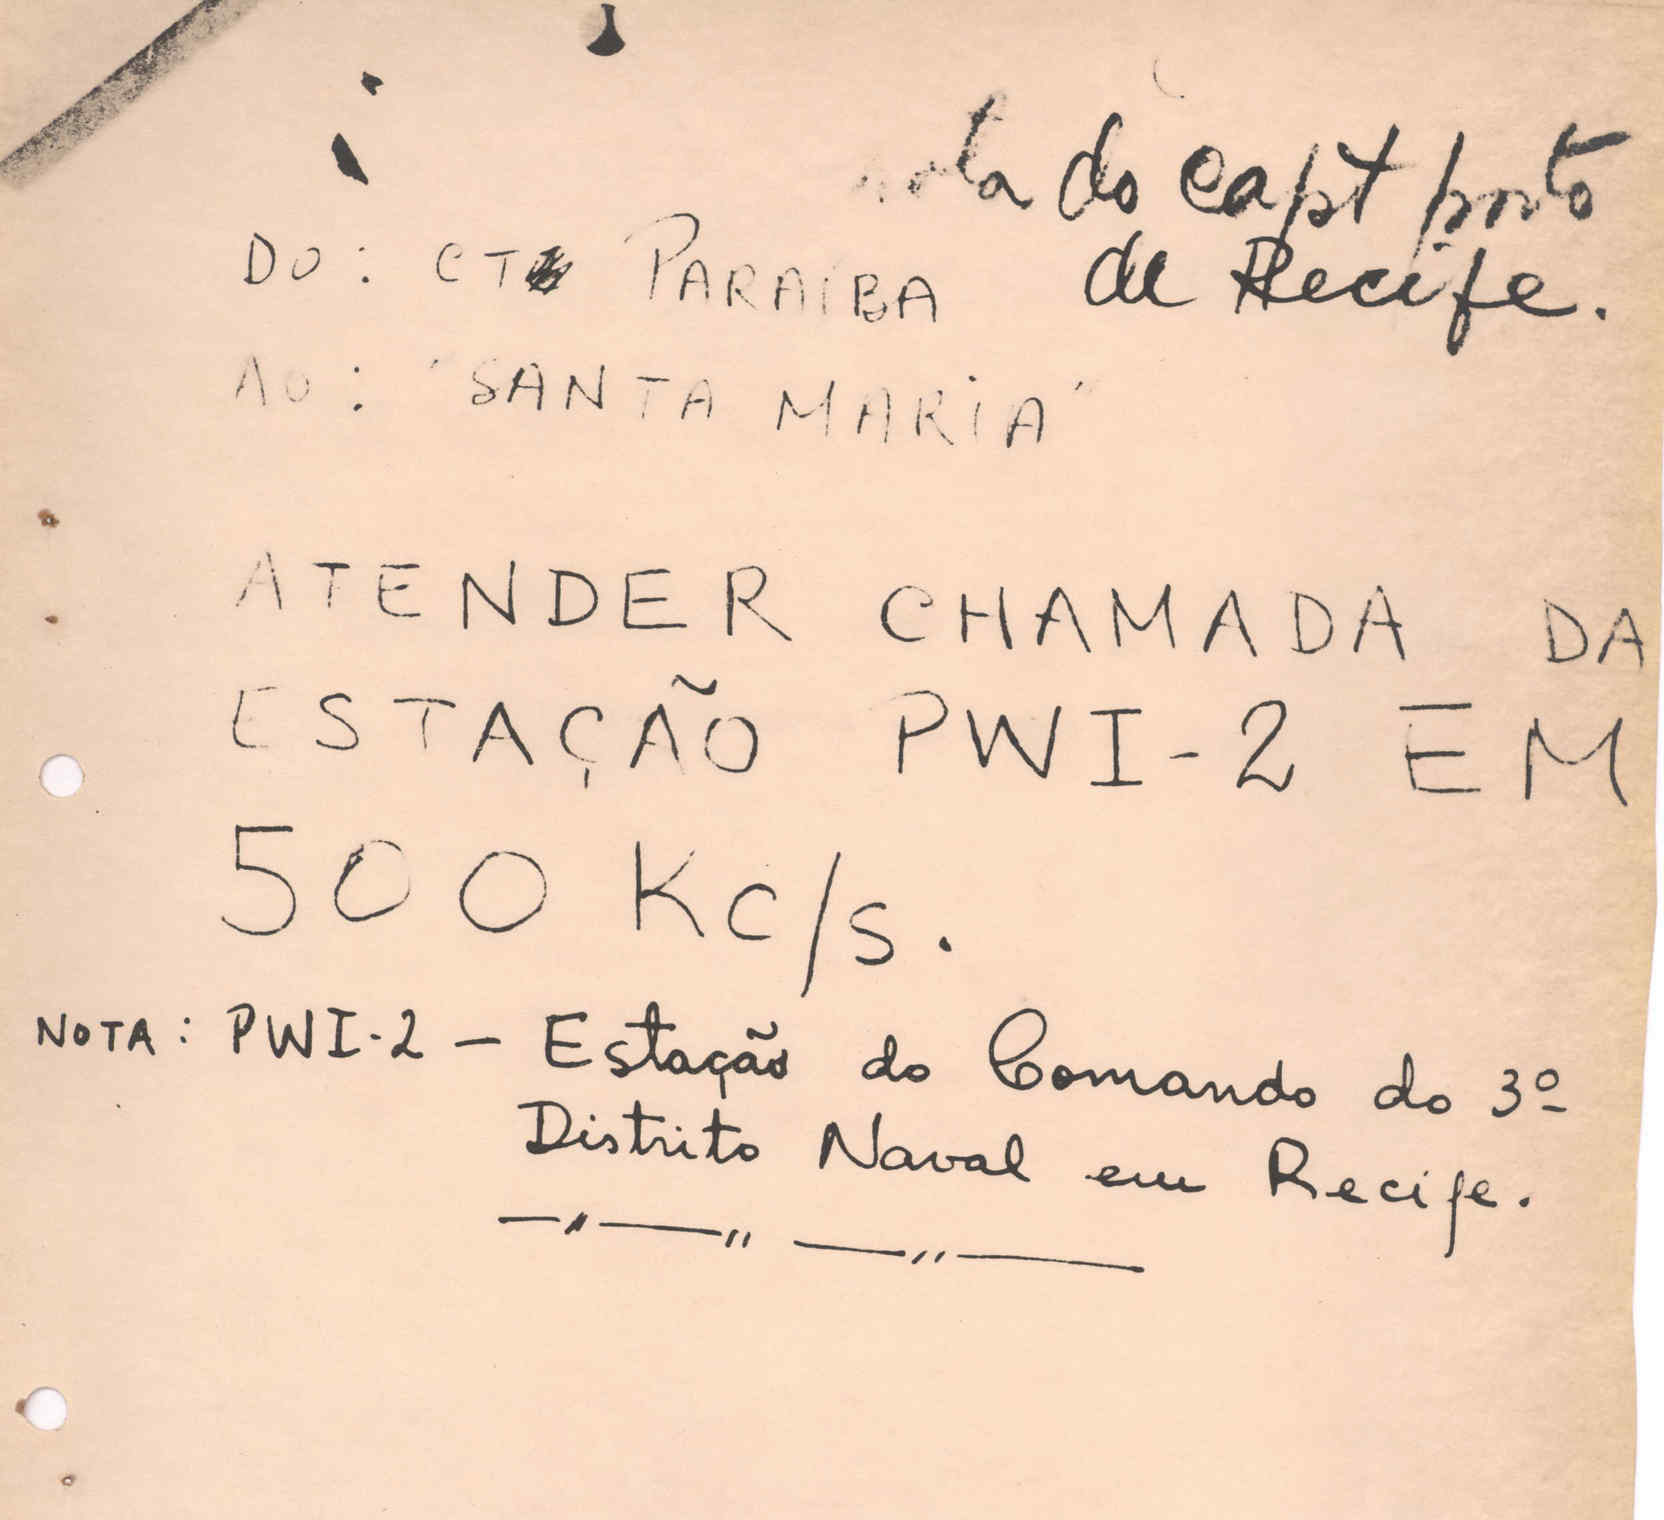 nota do capt porto
de Recife.
DO: CT PARAÍBA
AO: "SANTA MARIA"
ATENDER CHAMADA DA
ESTAÇÃO PWI-2 EM
500 Kc/s.
NOTA: PWI-2 — Estação do Comando do 3º
Distrito Naval em Recife.